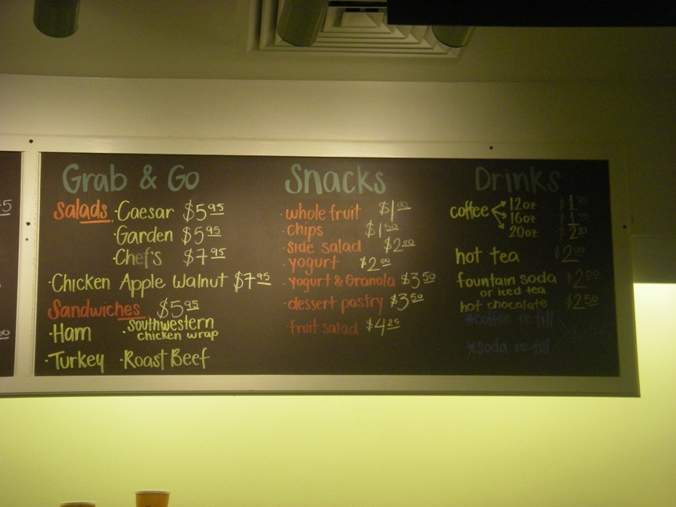 Grab & Go
Salads · Caesar $5.95
· Garden $5.95
· Chef's $7.95
· Chicken Apple Walnut $7.95
Sandwiches $5.95
· Ham · Southwestern chicken wrap
· Turkey · Roast Beef
Snacks
· whole fruit $1.00
· chips $1.50
· side salad $2.00
· yogurt $2.00
· yogurt & Granola $3.50
· dessert pastry $3.50
· fruit salad $4.25
Drinks
coffee 12oz
16oz
20oz
hot tea $2.00
fountain soda $2.00
or iced tea
hot chocolate $2.50
*coffee re-fill
*soda re-fill